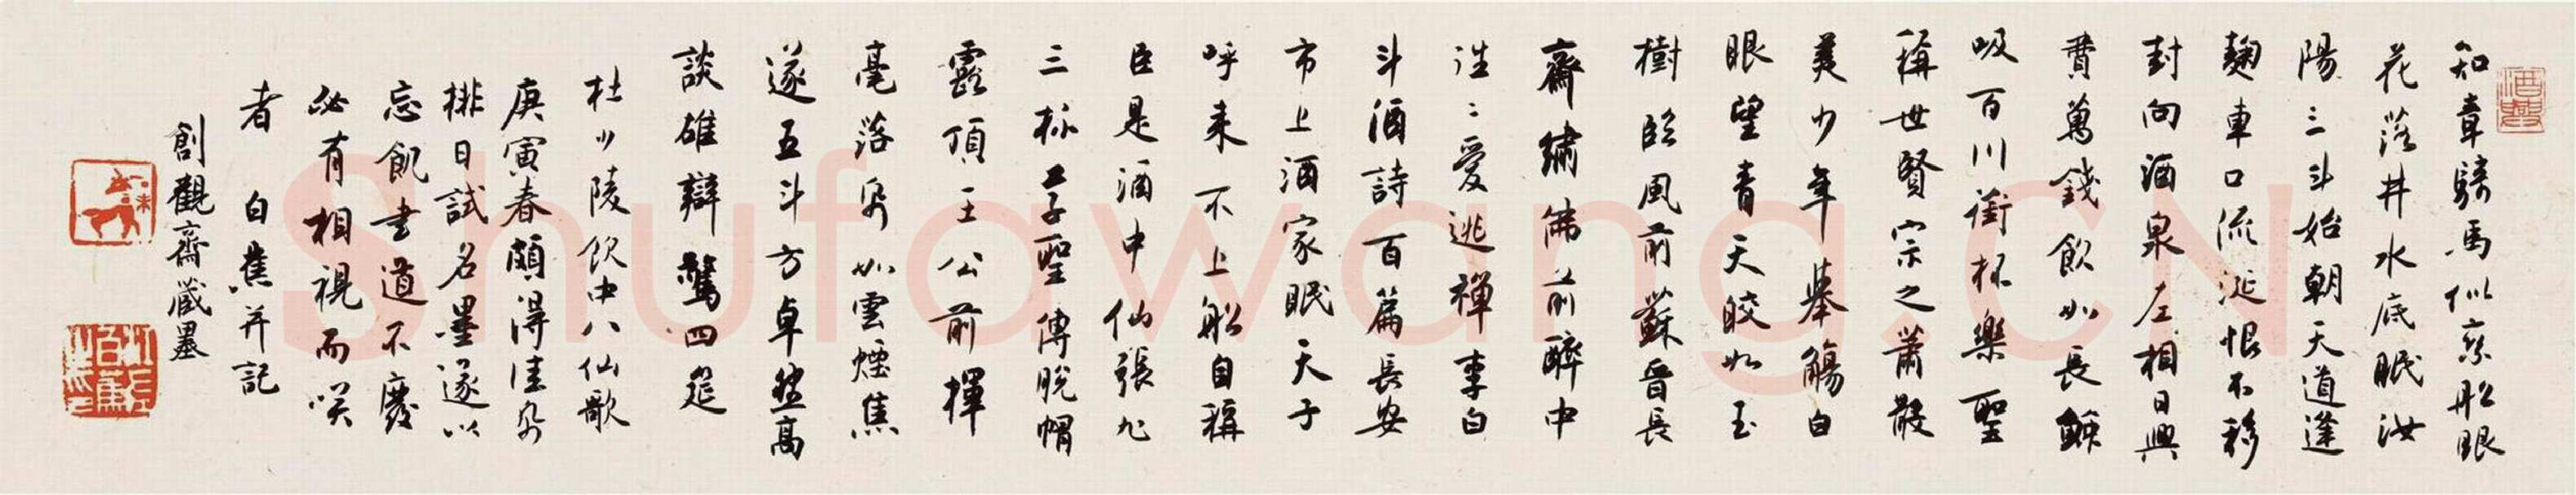 酒
知章騎馬似乘船眼
花落井水底眠汝
陽三斗始朝天道逢
麹車口流涎恨不移
封向酒泉左相日興
費萬錢飲如長鯨
吸百川銜杯樂聖
稱世賢宗之蕭散
美少年舉觴白
眼望青天皎如玉
樹臨風前蘇晉長
齋繡佛前醉中
往〻愛逃禪李白
斗酒詩百篇長安
市上酒家眠天子
呼来不上船自稱
臣是酒中仙張旭
三杯草聖傳脱帽
露頂王公前揮
毫落紙如雲煙焦
遂五斗方卓然高
談雄辯驚四筵
杜少陵飲中八仙歌
庚寅春頗得佳紙
排日試名墨遂以
忘飢書道不廢
必有相視而咲
者 白蕉并記
創觀齋蔵墨
白蕉
Shufawang.CN